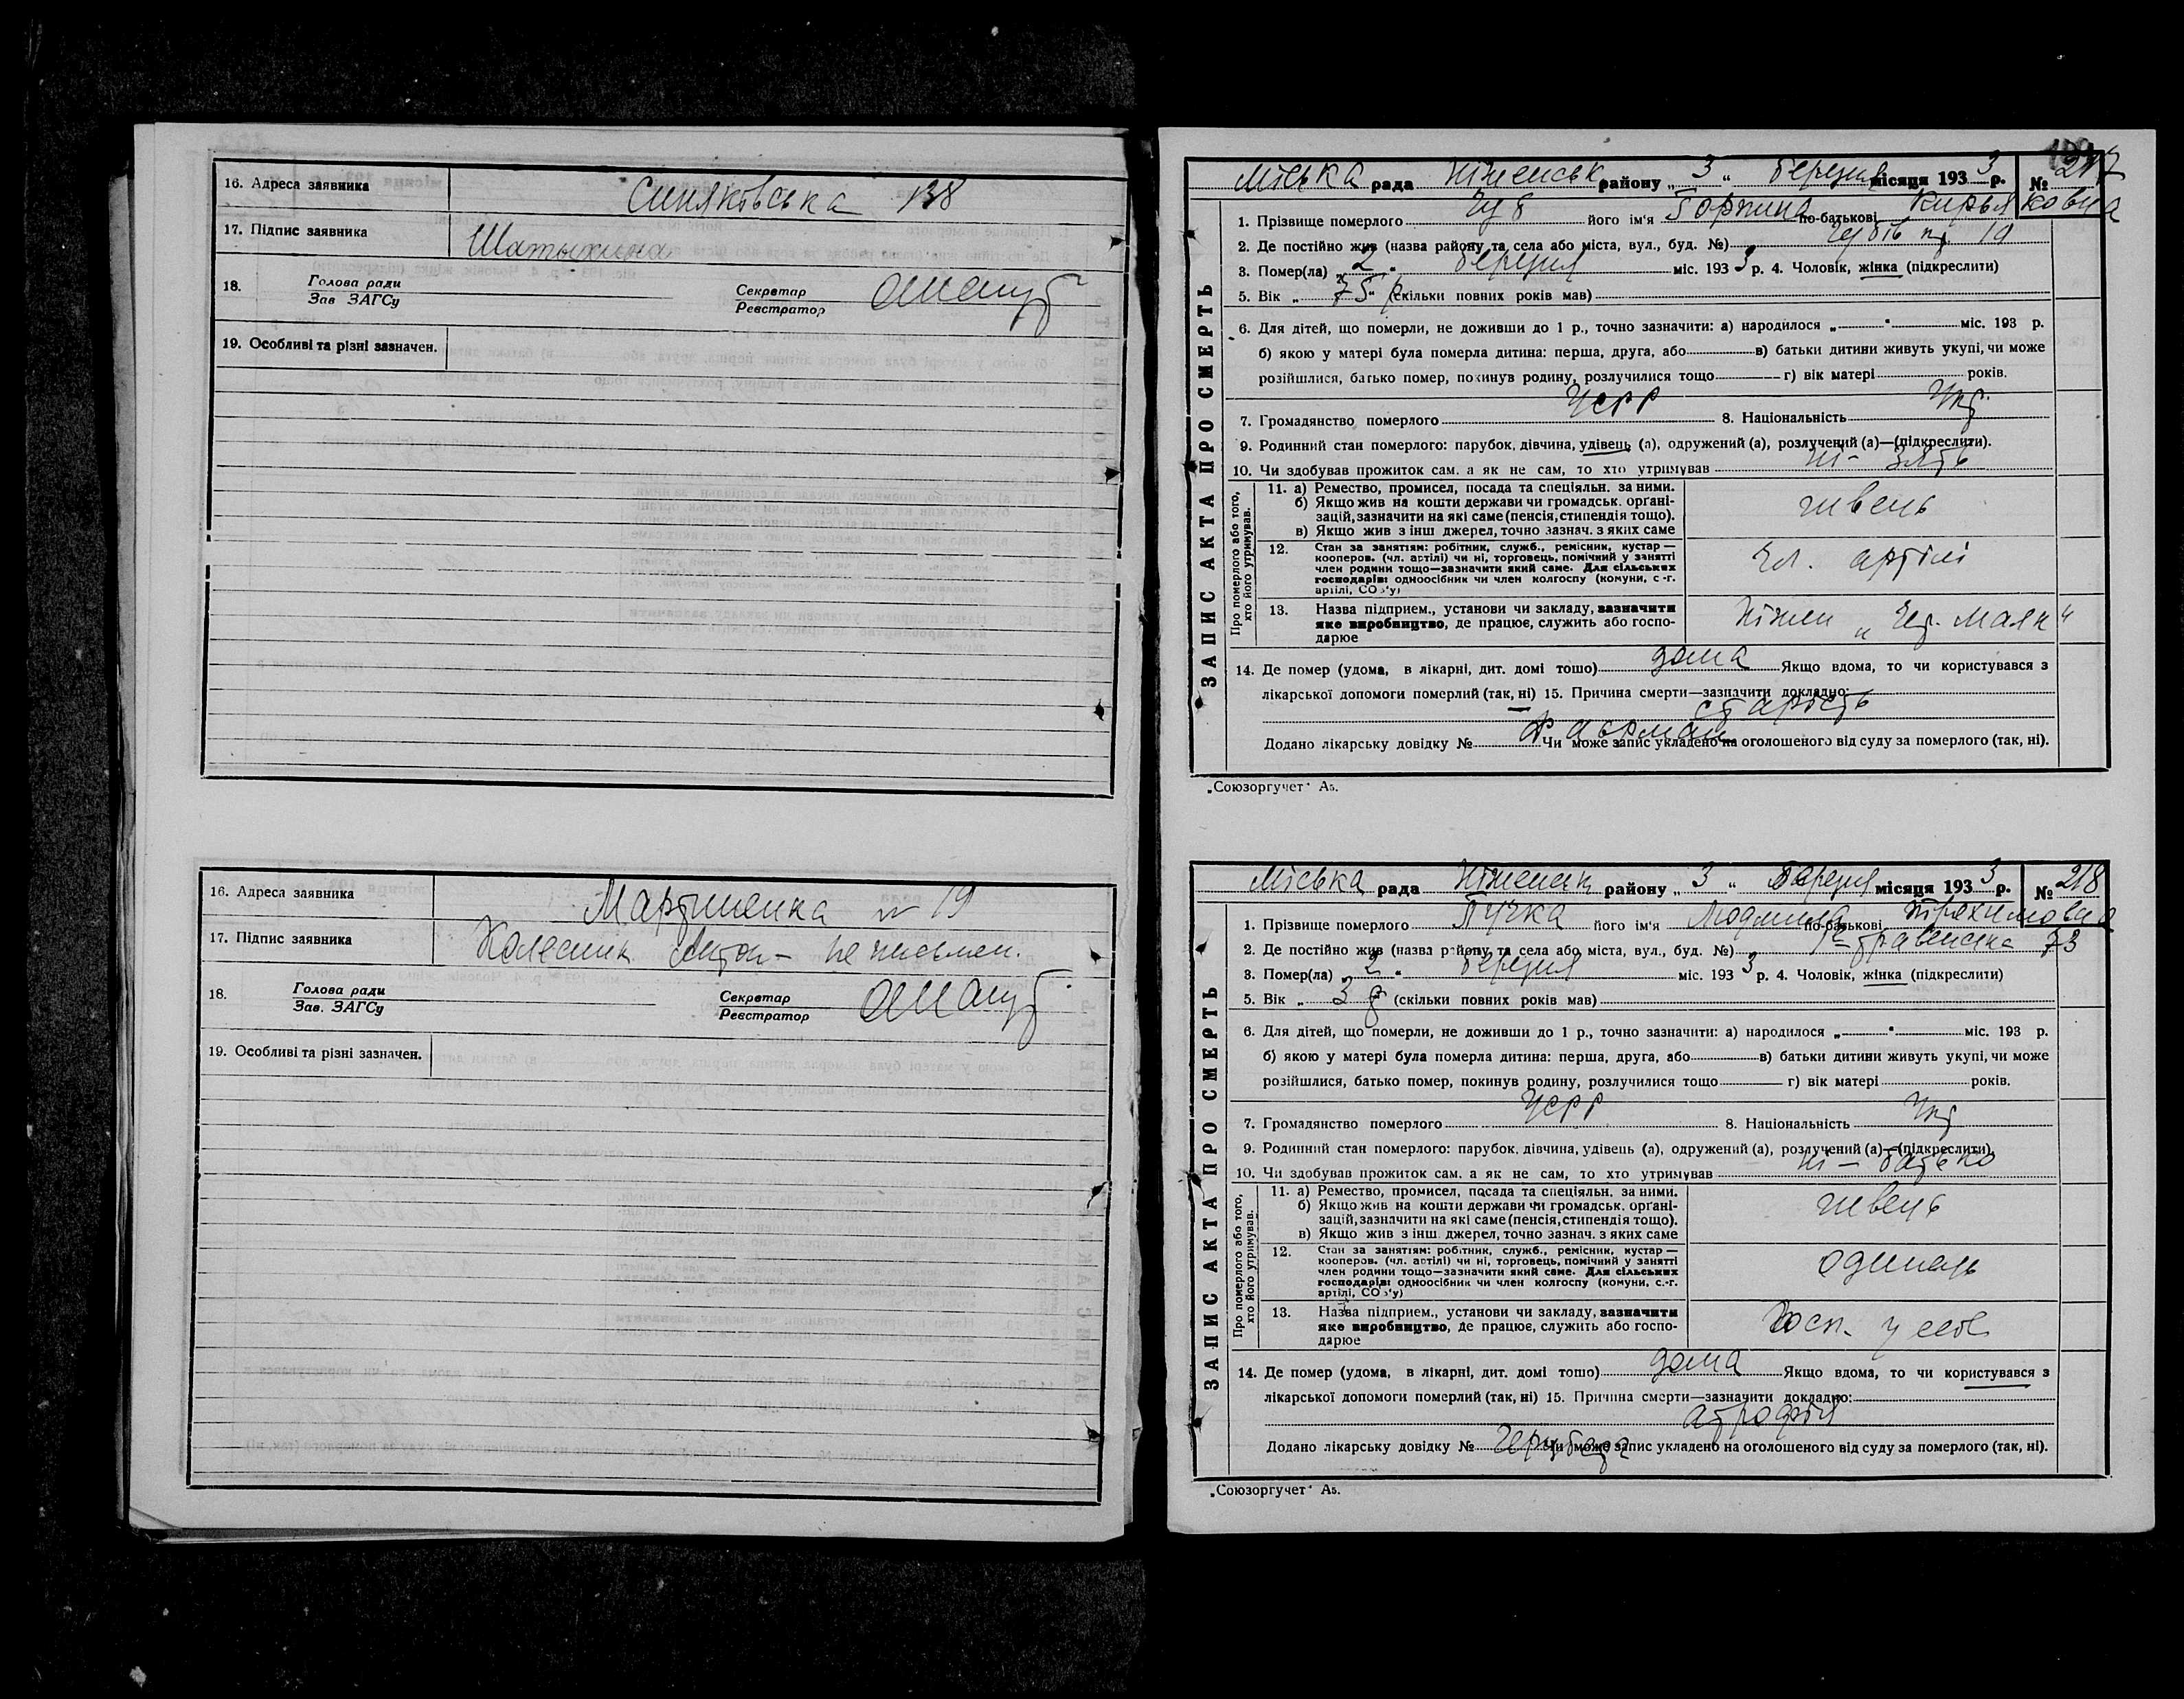 16. Адреса заявника Синяковська 138
17. Підпис заявника Шатыхина
18. Голова ради
Зав ЗАГСу
Секретар
Реєстратор
19. Особливі та різні зазначен.
16. Адреса заявника Мартиненка № 19
17. Підпис заявника Колесник Антон – не письмен.
18. Голова ради
Зав. ЗАГСу
Секретар
Реєстратор
19. Особливі та різні зазначен.
ЗАПИС АКТА ПРО СМЕРТЬ
Міська рада Ніженськ району „ 3 “ березня місяця 193 3 р. № 217
1. Прізвище померлого його ім'я Горпина по-батькові Кирья ковна
2. Де постійно жив (назва району та села або міста, вул., буд. №) 19
3. Помер(ла) „ 2 “ березня міс. 193 3 р. 4. Чоловік, жінка (підкреслити)
5. Вік „ 75 р “ (скільки повних років мав)
6. Для дітей, що померли, не доживши до 1 р., точно зазначити: а) народилося „ “ міс. 193 р.
б) якою у матері була померла дитина: перша, друга, або в) батьки дитини живуть укупі, чи може
розійшлися, батько помер, покинув родину, розлучилися тощо г) вік матері років.
7. Громадянство померлого УСРР 8. Національність Укр.
9. Родинний стан померлого: парубок, дівчина, удівець (а), одружений (а), розлучений (а)—(підкреслити).
10. Чи здобував прожиток сам, а як не сам, то хто утримував ні – зять
Про померлого або того,
хто його утримував.
11. а) Ремество, промисел, посада та спеціяльн. за ними.
б) Якщо жив на кошти держави чи громадськ. органі-
зацій, зазначити на які саме (пенсія, стипендія тощо).
в) Якщо жив з інш джерел, точно зазнач. з яких саме
швець
12. Стан за заняттям: робітник, служб., ремісник, кустар —
кооперов. (чл. артілі) чи ні, торговець, помічний у занятті
член родини тощо—зазначити який саме. Для сільських
господарів: одноосібник чи член колгоспу (комуни, с -г.
артілі, СОЗ'у)
чл. артілі
13. Назва підприєм., установи чи закладу, зазначити
яке виробництво, де працює, служить або госпо-
дарює
Ніжен „ Чер. Маяк “
14. Де помер (удома, в лікарні, дит. домі тощо) дома Якщо вдома, то чи користувався з
лікарської допомоги померлий (так, ні) 15. Причина смерти—зазначити докладно:
старість
Додано лікарську довідку № Чи може запис укладено на оголошеного від суду за померлого (так, ні).
„Союзоргучет“ А5.
ЗАПИС АКТА ПРО СМЕРТЬ
Міська рада Ніженськ району „ 3 “ березня місяця 193 3 р. № 218
1. Прізвище померлого Пучка його ім'я Людмила по-батькові Трохимовна
2. Де постійно жив (назва району та села або міста, вул., буд. №) травенська 73
3. Помер(ла) „ 2 “ березня міс. 193 3 р. 4. Чоловік, жінка (підкреслити)
5. Вік „ 3 р (скільки повних років мав)
6. Для дітей, що померли, не доживши до 1 р., точно зазначити: а) народилося „ “ міс. 193 р.
б) якою у матері була померла дитина: перша, друга, або в) батьки дитини живуть укупі, чи може
розійшлися, батько помер, покинув родину, розлучилися тощо г) вік матері років.
7. Громадянство померлого УСРР 8. Національність Укр
9. Родинний стан померлого: парубок, дівчина, удівець (а), одружений (а), розлучений (а)—(підкреслити).
10. Чи здобував прожиток сам, а як не сам, то хто утримував ні – батько
Про померлого або того,
хто його утримував.
11. а) Ремество, промисел, посада та спеціяльн. за ними.
б) Якщо жив на кошти держави чи громадськ. органі-
зацій, зазначити на які саме (пенсія, стипендія тощо).
в) Якщо жив з інш джерел, точно зазнач. з яких саме
швець
12. Стан за заняттям: робітник, служб., ремісник, кустар —
кооперов. (чл. артілі) чи ні, торговець, помічний у занятті
член родини тощо—зазначити який саме. Для сільських
господарів: одноосібник чи член колгоспу (комуни, с.-г.
артілі, СОЗ'у)
одинарь
13. Назва підприєм., установи чи закладу, зазначити
яке виробництво, де працює, служить або госпо-
дарює
Госп. у себе
14. Де помер (удома, в лікарні, дит. домі тощо) дома Якщо вдома, то чи користувався з
лікарської допомоги померлий (так, ні) 15. Причина смерти—зазначити докладно:
атрофія
Додано лікарську довідку № Чи може запис укладено на оголошеного від суду за померлого (так, ні).
„Союзоргучет“ А5.